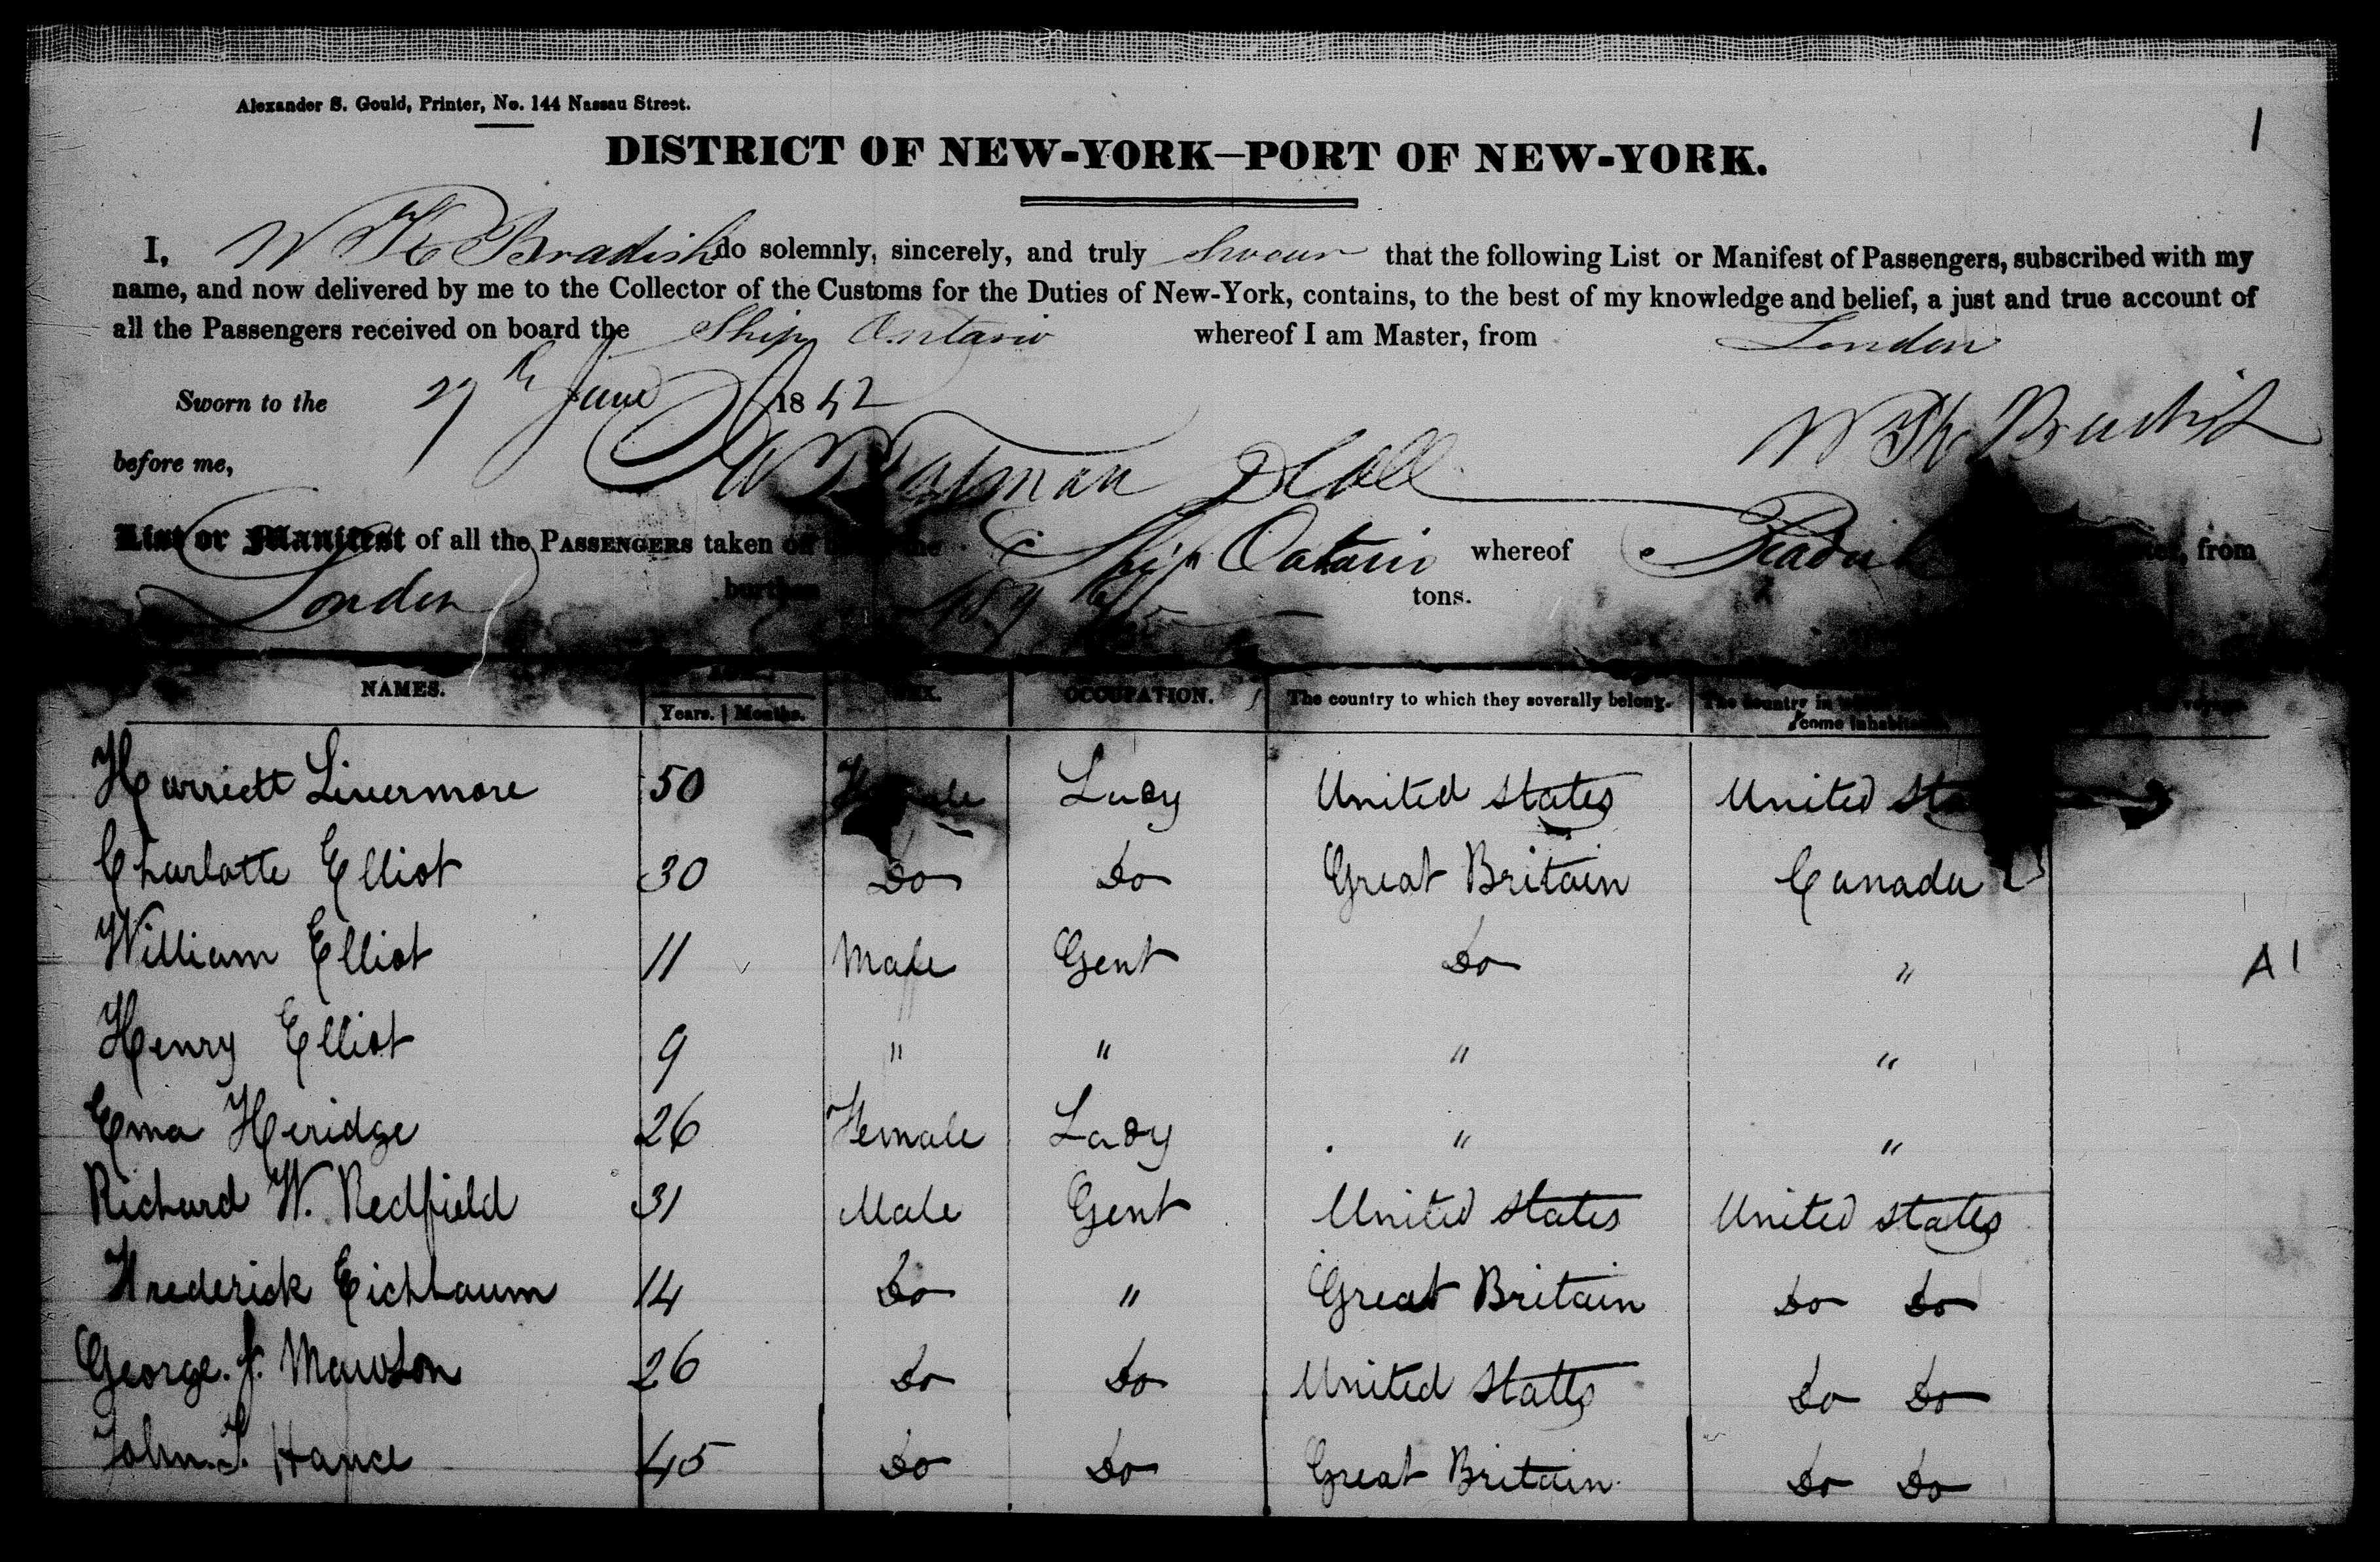 Alexander S. Gould, Printer, No. 144 Nassau Street.
1
DISTRICT OF NEW-YORK—PORT OF NEW-YORK.
I, W K Bradish do solemnly, sincerely, and truly Swear that the following List or Manifest of Passengers, subscribed with my
name, and now delivered by me to the Collector of the Customs for the Duties of New-York, contains, to the best of my knowledge and belief, a just and true account of
all the Passengers received on board the Ship Ontario whereof I am Master, from London
Sworn to the 27th June 1852
before me,
List or Manifest of all the PASSENGERS taken on the Ship Ontario whereof Bradish from
London burthen tons.
NAMES. Years. Months. SEX. OCCUPATION. The country to which they severally belong. The country in come inhabitants voyage
Harriett Livermore 50 Female Lady United States United Sta
Charlotte Elliot 30 Do Do Great Britain Canada
William Elliot 11 Male Gent Do " A1
Henry Elliot 9 " " " "
Ema Heridge 26 Female Lady " "
Richard W. Redfield 31 Male Gent United States United States
Frederick Eichbaum 14 Do " Great Britain Do Do
George. J. Mawson 26 Do Do United States Do Do
John. S. Hance 45 Do Do Great Britain Do Do